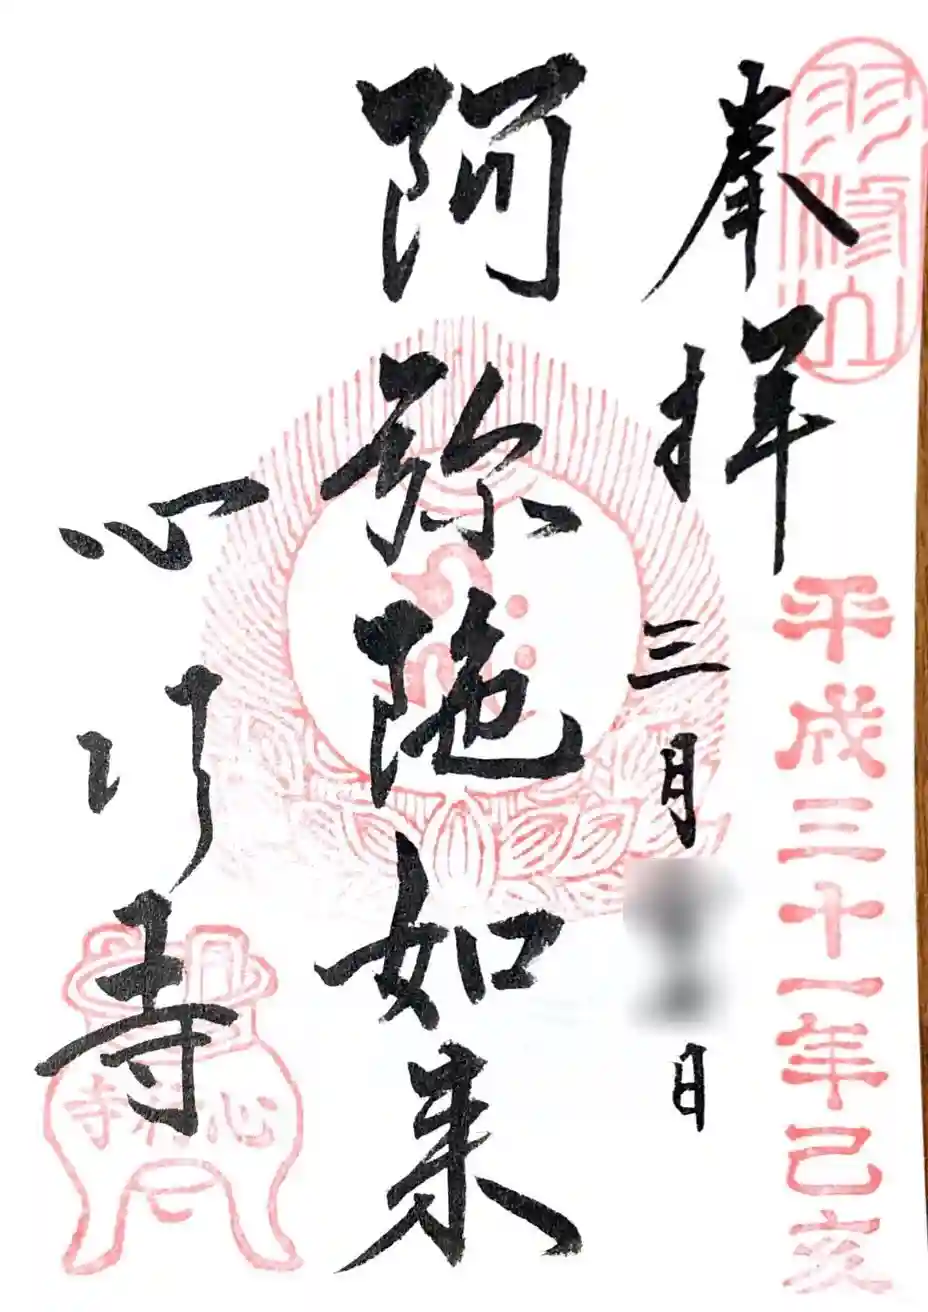 羽修山
奉拝
三月
日
平成三十一年己亥
阿弥陀如来
心行寺
心行寺